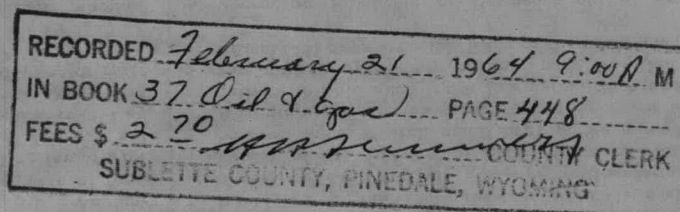 RECORDED February 21 1964 9:00 A M
IN BOOK 37 Oil & Gas PAGE 448
FEES $ 2 70 COUNTY CLERK
SUBLETTE COUNTY, PINEDALE, WYOMING